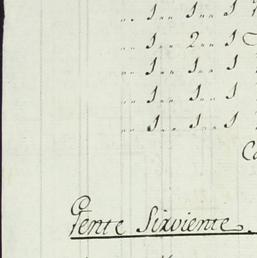 .. 1 .. 1 .. 1
.. 1 .. 2 .. 1
.. 1 .. 1 .. 1
.. 1 .. 1 .. 1
.. 1 .. 1 .. 1
Gente Sirviente.